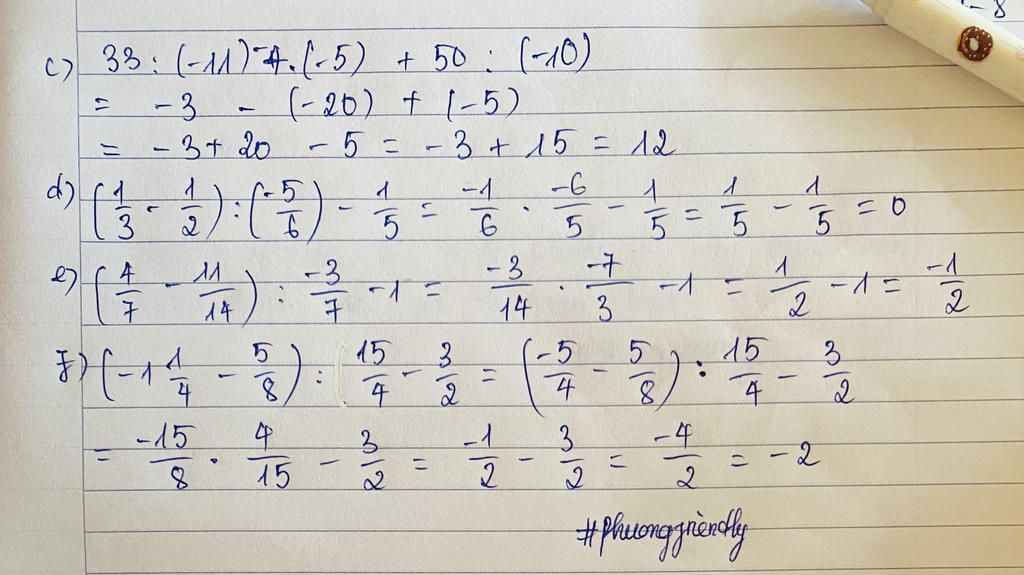 -8
c) 33 : (-11) - 4 . (-5) + 50 : (-10)
= -3 - (-20) + (-5)
= -3 + 20 - 5 = -3 + 15 = 12
d) (1/3 - 1/2) : (-5/6) - 1/5 = -1/6 . -6/5 - 1/5 = 1/5 - 1/5 = 0
e) (4/7 - 11/14) : -3/7 - 1 = -3/14 . -7/3 - 1 = 1/2 - 1 = -1/2
f) (-1 1/4 - 5/8) : 15/4 - 3/2 = (-5/4 - 5/8) : 15/4 - 3/2
= -15/8 . 4/15 - 3/2 = -1/2 - 3/2 = -4/2 = -2
#Phuongfriendly